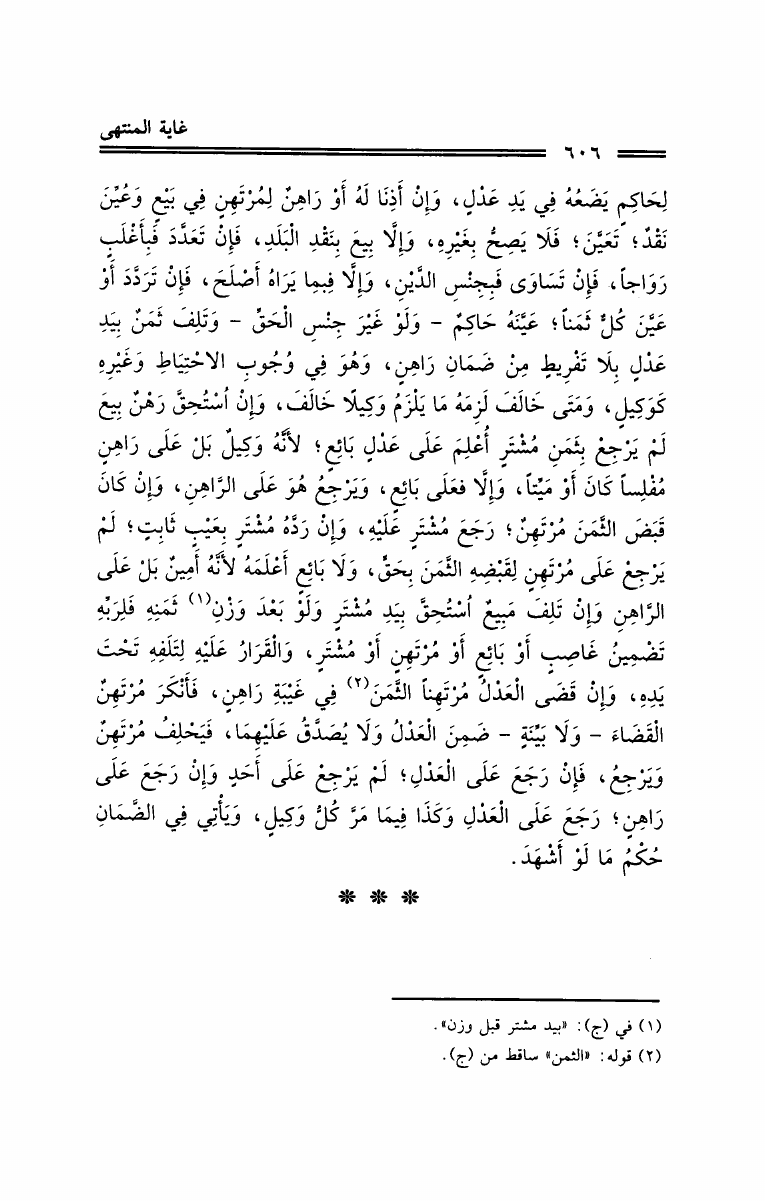 غاية المنتهى
٦٠٦
لِحَاكِمٍ يَضَعُهُ فِي يَدِ عَدْلٍ، وَإِنْ أَذِنَا لَهُ أَوْ رَاهِنٌ لِمُرْتَهِنٍ فِي بَيْعٍ وَعُيِّنَ
نَقْدٌ؛ تَعَيَّنَ؛ فَلَا يَصِحُّ بِغَيْرِهِ، وَإِلَّا بِيعَ بِنَقْدِ الْبَلَدِ، فَإِنْ تَعَدَّدَ فَبِأَغْلَبٍ
رَوَاجاً، فَإِنْ تَسَاوَى فَبِجِنْسِ الدَّيْنِ، وَإِلَّا فَبِمَا يَرَاهُ أَصْلَحَ، فَإِنْ تَرَدَّدَ أَوْ
عَيَّنَ كُلٌّ ثَمَناً؛ عَيَّنَهُ حَاكِمٌ - وَلَوْ غَيْرَ جِنْسِ الْحَقِّ - وَتَلِفَ ثَمَنٌ بِيَدِ
عَدْلٍ بِلَا تَفْرِيطٍ مِنْ ضَمَانِ رَاهِنٍ، وَهُوَ فِي وُجُوبِ الاحْتِيَاطِ وَغَيْرِهِ
كَوَكِيلٍ، وَمَتَى خَالَفَ لَزِمَهُ مَا يَلْزَمُ وَكِيلًا خَالَفَ، وَإِنْ اُسْتُحِقَّ رَهْنٌ بِيعَ
لَمْ يَرْجِعْ بِثَمَنٍ مُشْتَرٍ أُعْلِمَ عَلَى عَدْلٍ بَائِعٍ؛ لأَنَّهُ وَكِيلٌ بَلْ عَلَى رَاهِنٍ
مُفْلِساً كَانَ أَوْ مَيِّتاً، وَإِلَّا فعَلَى بَائِعٍ، وَيَرْجِعُ هُوَ عَلَى الرَّاهِنِ، وَإِنْ كَانَ
قَبَضَ الثَّمَنَ مُرْتَهِنٌ؛ رَجَعَ مُشْتَرٍ عَلَيْهِ، وَإِنْ رَدَّهُ مُشْتَرٍ بِعَيْبٍ ثَابِتٍ؛ لَمْ
يَرْجِعْ عَلَى مُرْتَهِنٍ لِقَبْضِهِ الثَّمَنَ بِحَقٍّ، وَلَا بَائِعٍ أَعْلَمَهُ لأَنَّهُ أَمِينٌ بَلْ عَلَى
الرَّاهِنِ وَإِنْ تَلِفَ مَبِيعٌ اُسْتُحِقَّ بِيَدِ مُشْتَرٍ وَلَوْ بَعْدَ وَزْنِ(١) ثَمَنِهِ فَلِرَبِّهِ
تَضْمِينُ غَاصِبٍ أَوْ بَائِعٍ أَوْ مُرْتَهِنٍ أَوْ مُشْتَرٍ، وَالْقَرَارُ عَلَيْهِ لِتَلَفِهِ تَحْتَ
يَدِهِ، وَإِنْ قَضَى الْعَدْلُ مُرْتَهِناً الثَّمَنَ(٢) فِي غَيْبَةِ رَاهِنٍ، فَأَنْكَرَ مُرْتَهِنٌ
الْقَضَاءَ - وَلَا بَيِّنَةٍ - ضَمِنَ الْعَدْلُ وَلَا يُصَدَّقُ عَلَيْهِمَا، فَيَحْلِفُ مُرْتَهِنٌ
وَيَرْجِعُ، فَإِنْ رَجَعَ عَلَى الْعَدْلِ؛ لَمْ يَرْجِعْ عَلَى أَحَدٍ وَإِنْ رَجَعَ عَلَى
رَاهِنٍ؛ رَجَعَ عَلَى الْعَدْلِ وَكَذَا فِيمَا مَرَّ كُلُّ وَكِيلٍ، وَيَأْتِي فِي الضَّمَانِ
حُكْمُ مَا لَوْ أَشْهَدَ.
* * *
(١) في (ج): «بيد مشتر قبل وزن».
(٢) قوله: «الثمن» ساقط من (ج).